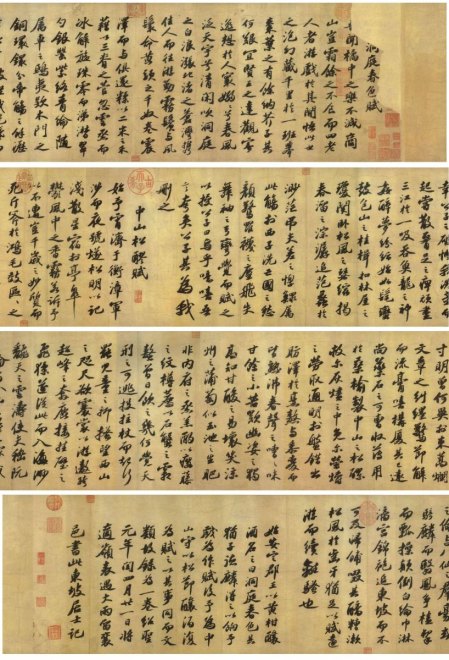 洞庭春色賦
吾聞橘中之樂不減商
山豈霜餘之不食而四老
人者游戲於其間悟此世
之泡幻藏千里於一斑舉
棗葉之有餘納芥子其
何艱宜賢王之達觀寄
逸想於人寰嫋嫋兮春風
泛天宇兮清閒吹洞庭
之白浪漲北渚之蒼灣攜
佳人而往遊勒霧鬢與風
鬟命黃頭之千奴卷震
澤而與俱還糅以二米之禾
藉以三脊之菅忽雲烝而
冰解旋珠零而涕潸翠
勺銀罌紫絡青綸隨
屬車之鴟夷款木門之
銅鐶分帝觴之餘瀝
起嘗散腰足之痹頑盡
三江於一吸吞魚龍之神
姦醉夢紛紜始如髦蠻
鼓包山之桂楫扣林屋之
瓊關臥松風之瑟縮揭
春溜之淙潺追范蠡於
渺茫弔夫差之惸鰥屬
此觴於西子洗亡國之愁
顏驚羅襪之塵飛失
舞袖之弓彎覺而賦之
以授公子曰烏乎噫嘻吾
言夸矣公子其為我
刪之
中山松醪賦
始予宵濟於衡漳軍
涉而夜號燧松明以記
淺散星宿於亭皋
鬱風中之香霧若訴予
以不遭豈千歲之妙質而
死斤斧於鴻毛效區區之
寸明曾何異於束蒿爛
文章之糾纆驚節解
而流膏嗟構廈其已遠
尚藥石之可曹收薄用
於桑榆製中山之松醪
救爾灰燼之中免爾螢爝
之勞取通明於盤錯出
肪澤於烹熬與黍麥而
皆熟沸春聲之嘈嘈味
甘餘而小苦歎幽姿之獨
高知甘酸之易壞笑涼
州之蒲萄似玉池之生肥
非內府之蒸羔酌以癭藤
之紋樽薦以石蟹之霜
螯曾日飲之幾何覺天
刑之可逃投拄杖而起行
罷兒童之抑搔望西山
之咫尺欲褰裳以游遨跨
超峰之奔鹿接挂壁之
飛猱遂從此而入海渺
翻天之雲濤使夫嵇阮
之倫與八仙之群豪或
騎麟而翳鳳爭榼挈
而瓢操顛倒白綸巾淋
漓宮錦袍追東坡而不
可及歸餔歠其醨糟漱
松風於齒牙猶足以賦遠
遊而續離騷也
始安定郡王以黃柑釀
酒名之曰洞庭春色其
猶子德麟得之以餉予
戲為作賦後予為中
山守以松節釀酒復
為賦之以其事同而文
類故錄為一卷紹聖
元年閏四月廿一日將
適嶺表遇大雨留襄
邑書此東坡居士記